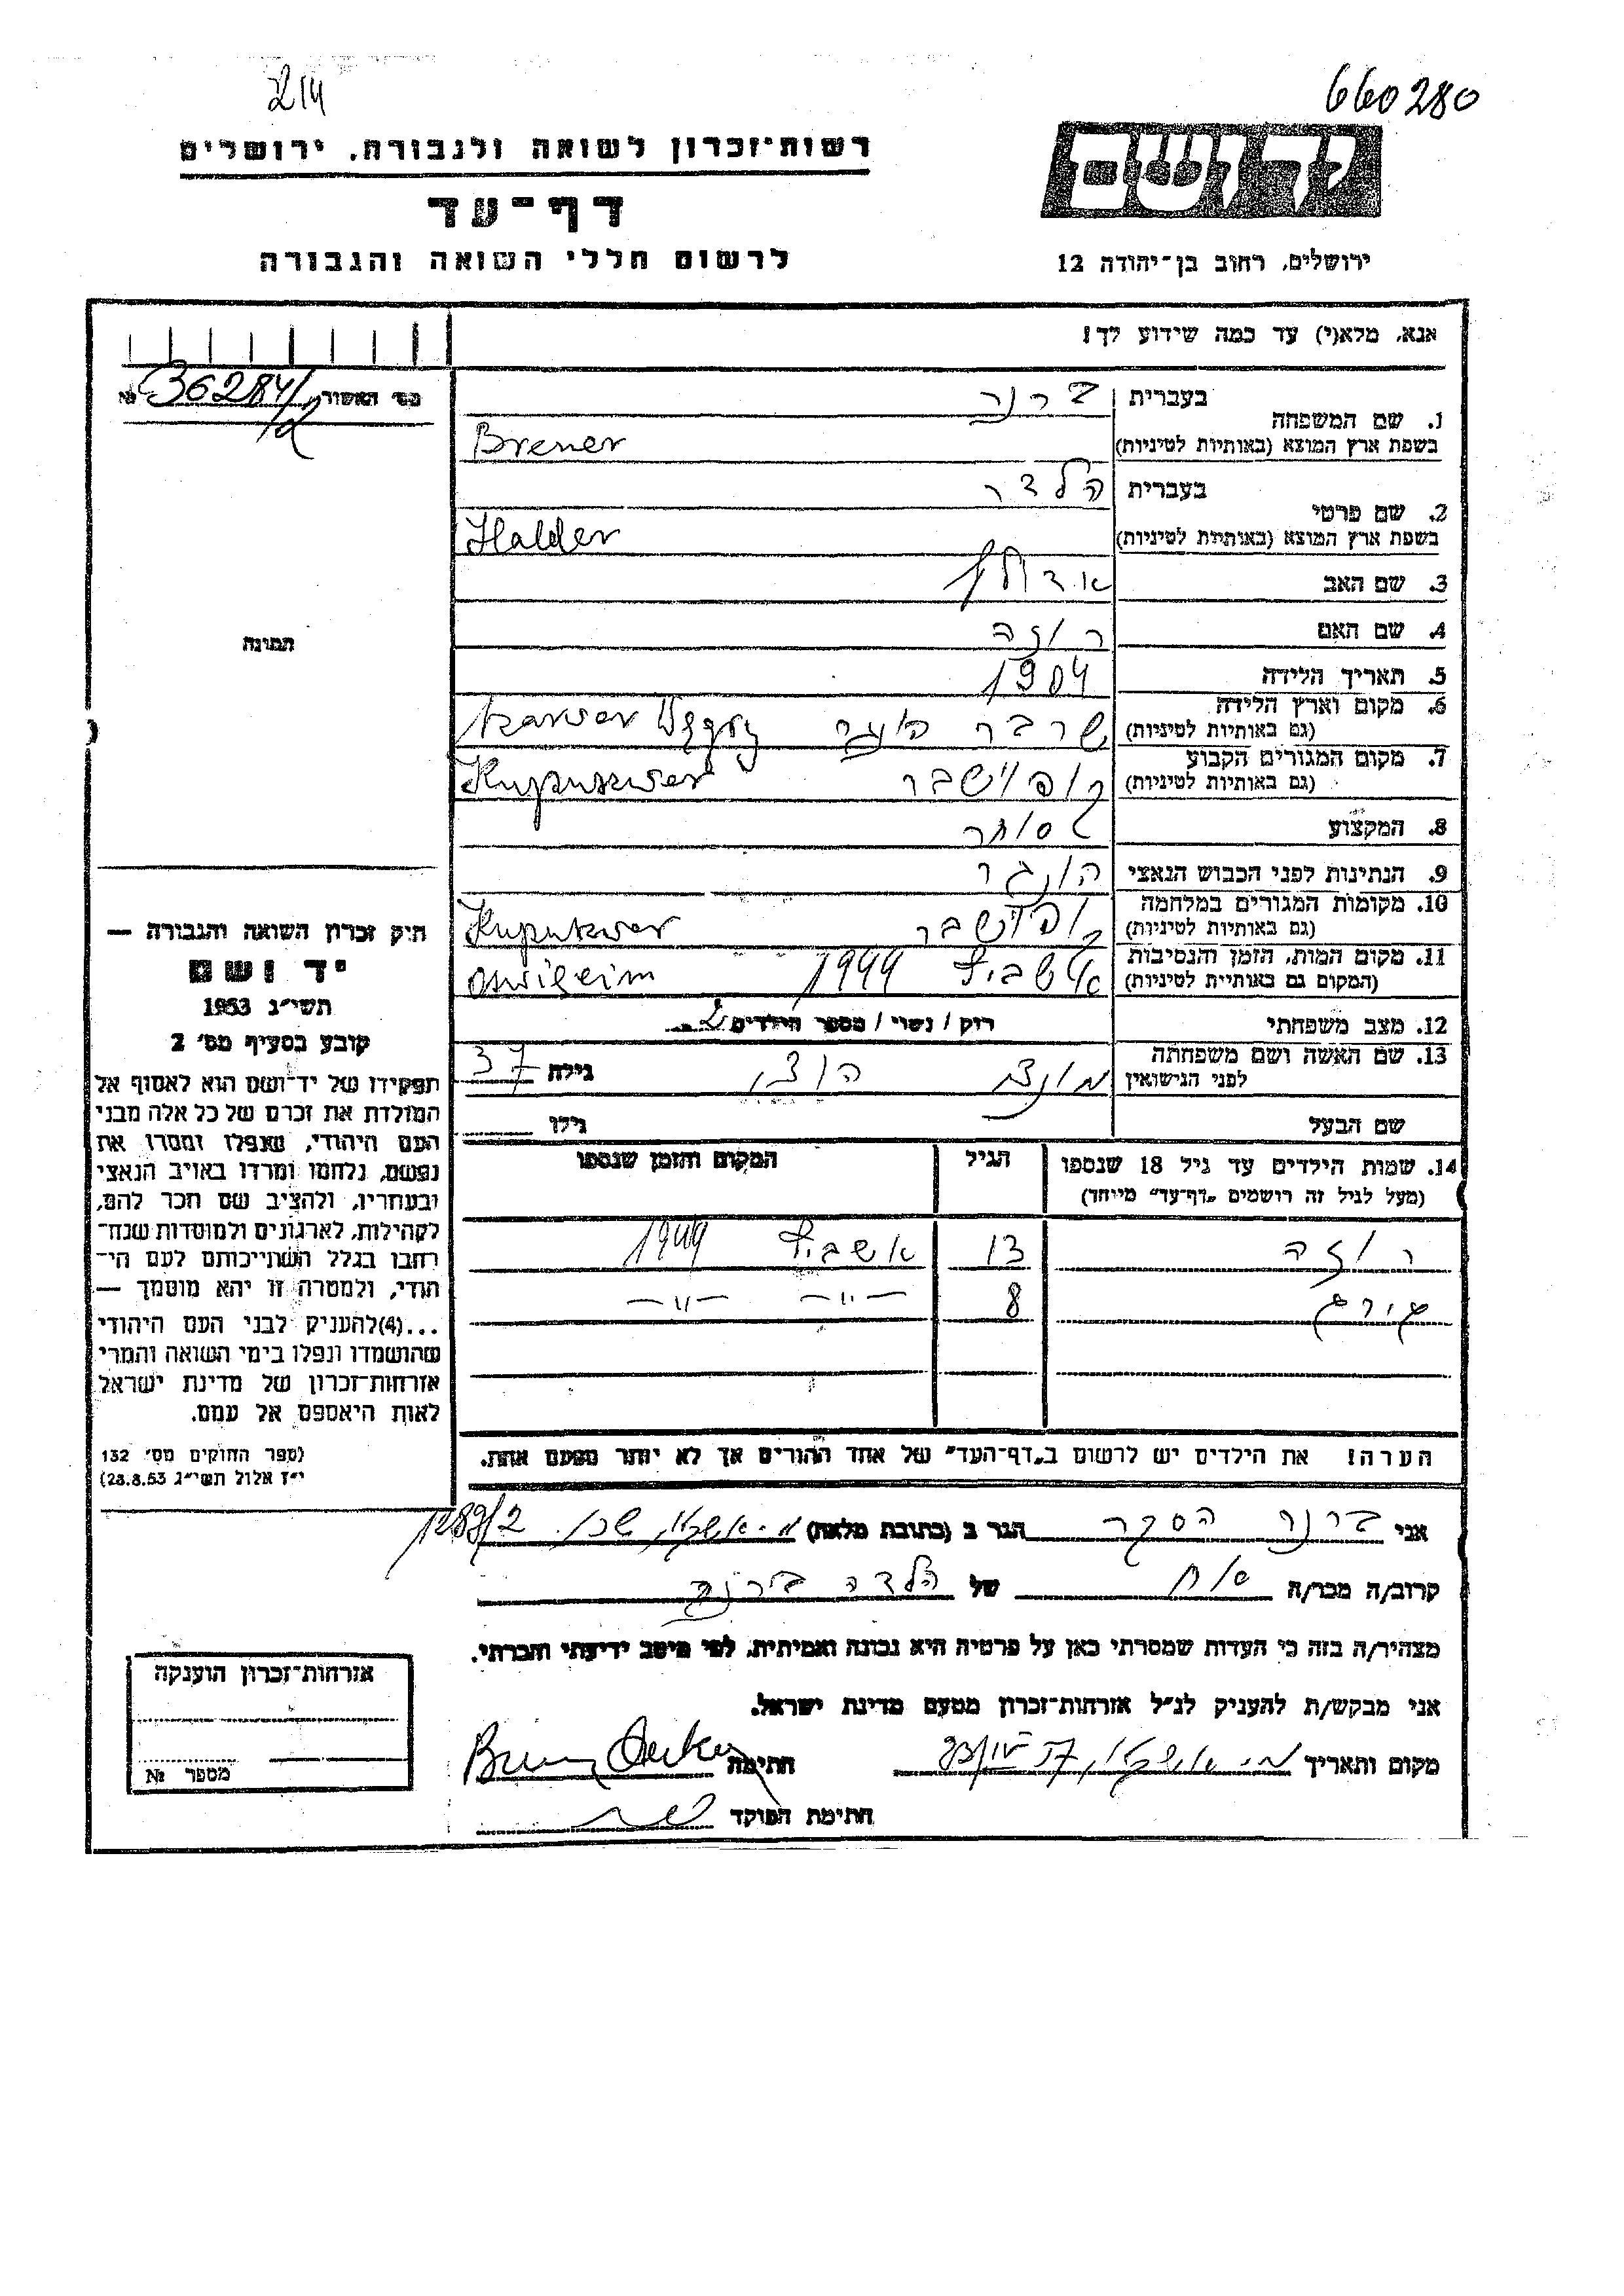 214
660280
רשות־זכרון לשואה ולגבורה, ירושלים
דף־עד
לרשום חללי השואה והגבורה
יד ושם
ירושלים, רחוב בן־יהודה 12
אנא, מלא(י) עד כמה שידוע לך!
מס׳ האשור № 36284/
1. שם המשפחה
בעברית ברנר
בשפת ארץ המוצא (באותיות לטיניות) Brener
2. שם פרטי
בעברית הלדר
בשפת ארץ המוצא (באותיות לטיניות) Halder
3. שם האב אדולף
4. שם האם רוזה
5. תאריך הלידה 1904
6. מקום וארץ הלידה
(גם באותיות לטיניות) Węgry
7. מקום המגורים הקבוע
(גם באותיות לטיניות) קופושבר
8. המקצוע סוחר
9. הנתינות לפני הכבוש הנאצי הונגר
10. מקומות המגורים במלחמה
(גם באותיות לטיניות) קופושבר
11. מקום המות, הזמן והנסיבות
(המקום גם באותיות לטיניות) 1944
12. מצב משפחתי רוק / נשוי / מספר הילדים 2
13. שם האשה ושם משפחתה
לפני הנישואין גילה 37
שם הבעל גילו
14. שמות הילדים עד גיל 18 שנספו
(מעל לגיל זה רושמים „דף־עד” מיוחד)
הגיל
המקום והזמן שנספו
רוזה 13 אשביץ 1944
8 —״— —״—
הערה! את הילדים יש לרשום ב„דף־העד” של אחד ההורים אך לא יותר מפעם אחת.
תמונה
תיק זכרון השואה והגבורה —
יד ושם
תשי״ג 1953
קובע בסעיף מס׳ 2
תפקידו של יד־ושם הוא לאסוף אל
המולדת את זכרם של כל אלה מבני
העם היהודי, שנפלו ומסרו את
נפשם, נלחמו ומרדו באויב הנאצי
ובעוזריו, ולהציב שם וזכר להם,
לקהילות, לארגונים ולמוסדות שנח־
רבו בגלל השתייכותם לעם הי־
הודי, ולמטרה זו יהא מוסמך —
...(4)להעניק לבני העם היהודי
שהושמדו ונפלו בימי השואה והמרי
אזרחות־זכרון של מדינת ישראל
לאות היאספם אל עמם.
(ספר החוקים מס׳ 132
י״ז אלול תשי״ג 28.8.53)
אני ברנר הסקר הגר ב (כתובת מלאה) 1289/2
קרוב/ה מכר/ה של
מצהיר/ה בזה כי העדות שמסרתי כאן על פרטיה היא נכונה ואמיתית, לפי מיטב ידיעתי והכרתי.
אני מבקש/ת להעניק לנ״ל אזרחות־זכרון מטעם מדינת ישראל.
מקום ותאריך חתימה
חתימת הפוקד
אזרחות־זכרון הוענקה
מספר №